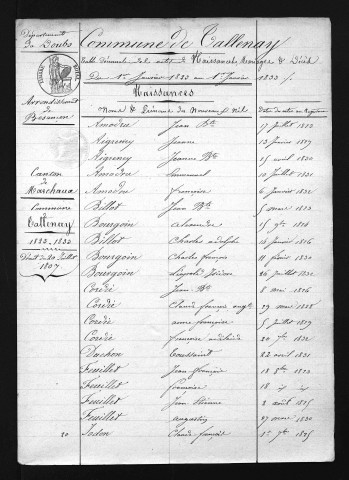 Département
du Doubs
Arrondissement
de
Besançon
Canton
de
Marchaux
Commune
de
Tallenay
1823-1833
Décret du 20 Juillet
1807
Commune de Tallenay
Table Décennale des actes de Naissances, Mariages & Décès
Du 1er Janvier 1823 au 1er Janvier 1833
Naissances
Noms & Prénoms du Nouveau Né
Amodru Jean Bte 17 Juillet 1823
Jeanne 13 Janvier 1829
Jeanne Bte 25 avril 1830
Amodru Emmanuel 10 Juillet 1831
Amodru françoise 6 Janvier 1832
Billot Jean Bte 5 mars 1823
Bourgoin alexandre 15 9bre 1826
Billot Charles adolphe 14 Janvier 1826
Bourgoin Charles françois 11 février 1830
Bourgoin 26 Juillet 1832
Cordié Jean Bte 8 mai 1826
Cordié Claude françois augte 29 mai 1828
Cordié anne françoise 5 Juillet 1829
Cordié françoise adelaide 20 7bre 1832
Duchon Toussaint 22 avril 1831
Feuillet Jean françois 18 8bre 1823
Feuillet françoise 18 id id
Feuillet Jean Etienne 2 août 1825
Feuillet augustin 27 1830
20 Jodon Claude françois 1er 7bre 1825